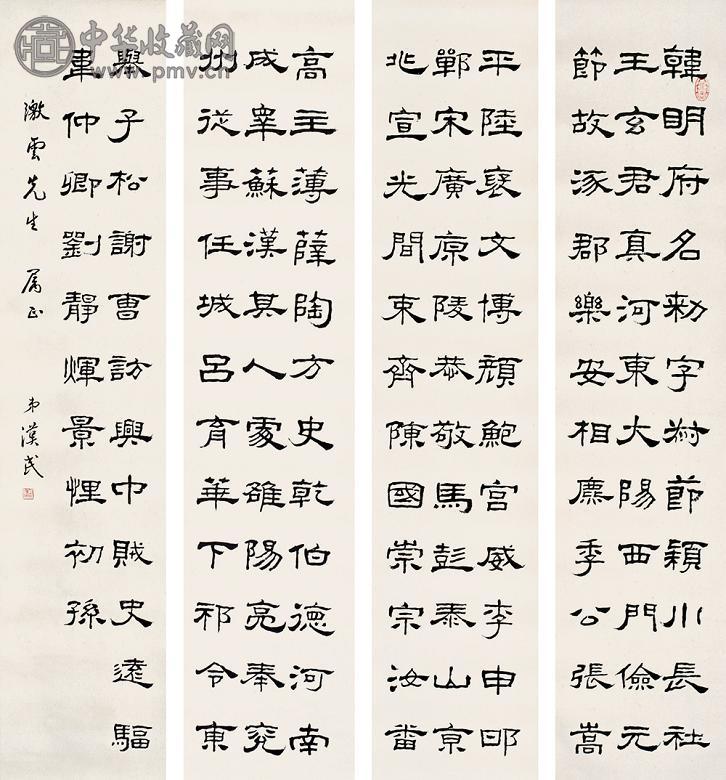 中华收藏网
www.pmv.cn
韓明府名勑字叔節潁川長社
王玄君真河東大陽西門儉元
節故涿郡樂安相麃季公張嵩
平陸襃文博顏鮑宮威李申
鄲宋廣原陵恭敬馬彭泰山京
北宣光間束齊陳國崇宗汝番
高主薄薛陶方史乾伯德河南
成睾蘇漢其人處雒陽亮奉兗
州從事任城呂育華下祁令東
舉子松謝曹訪興中賊史遠驅
韋仲卿劉靜煇景悝初孫
澂雲先生 屬正 弟漢民